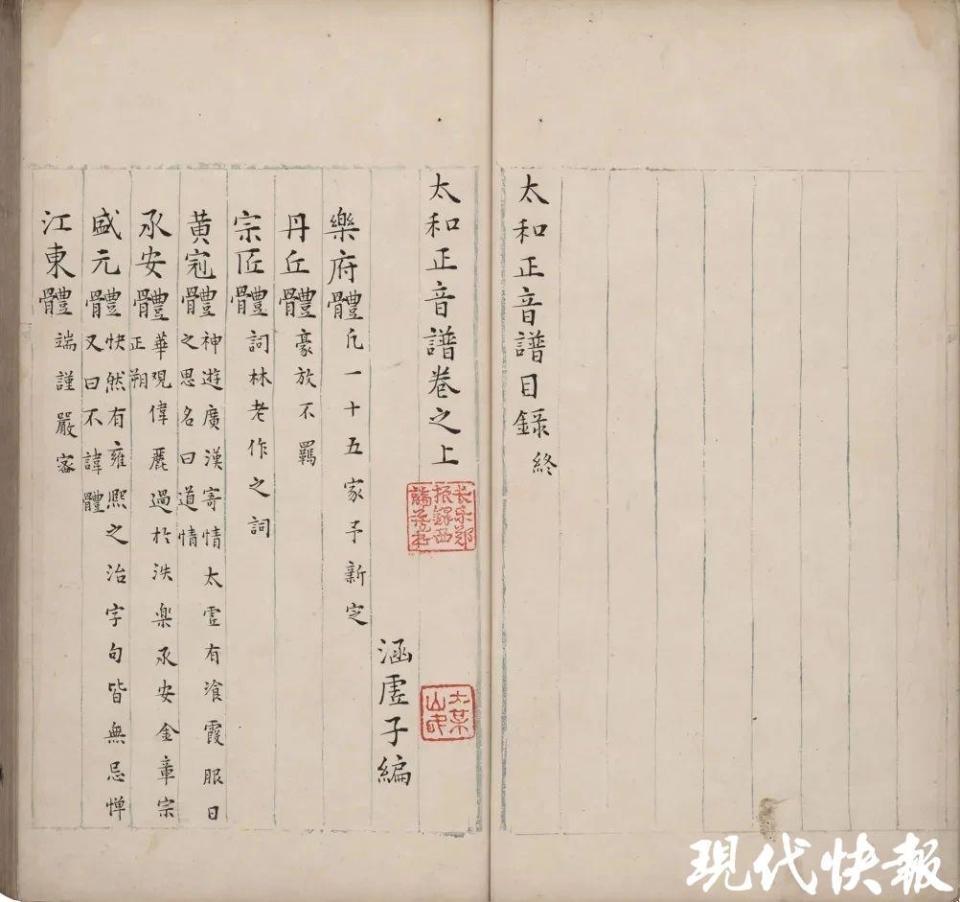 太和正音譜目錄終
太和正音譜卷之上
长乐郑
振鐸西
諦藏书
大某
山民
涵虛子編
樂府體 凡一十五家予新定
丹丘體 豪放不羈
宗匠體 詞林老作之詞
黃冠體 神遊廣漢寄情太虛有飡霞服日
之思名曰道情
承安體 華觀偉麗過於泆樂承安金章宗
正朔
盛元體 快然有雍熙之治字句皆無忌憚
又曰不諱體
江東體 端謹嚴密
現代快報